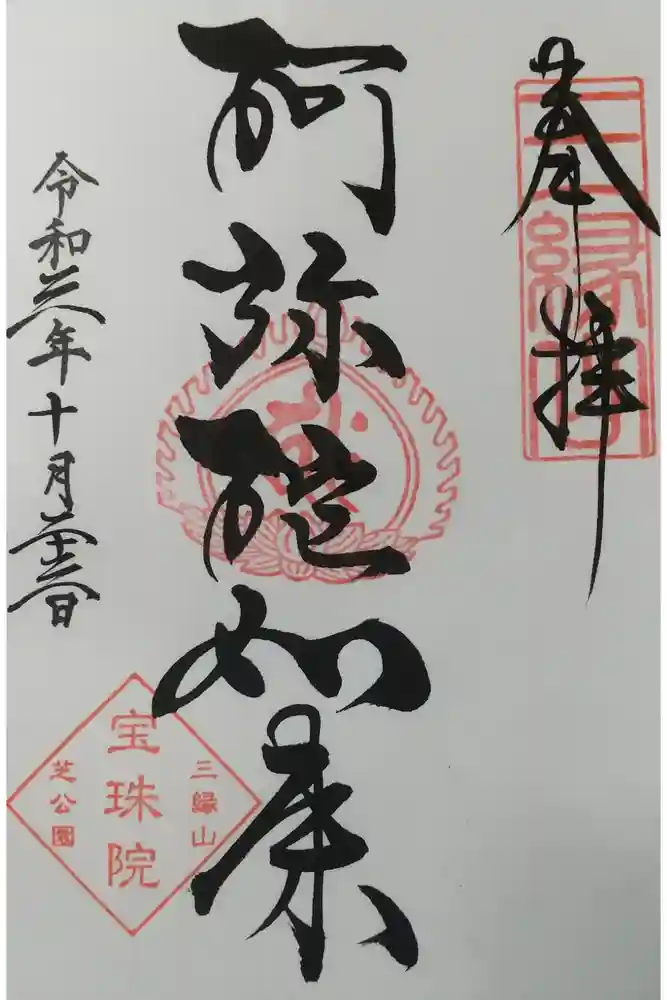 奉拝
三縁山
阿弥陀如来
令和三年十月二十三日
三縁山
宝珠院
芝公園